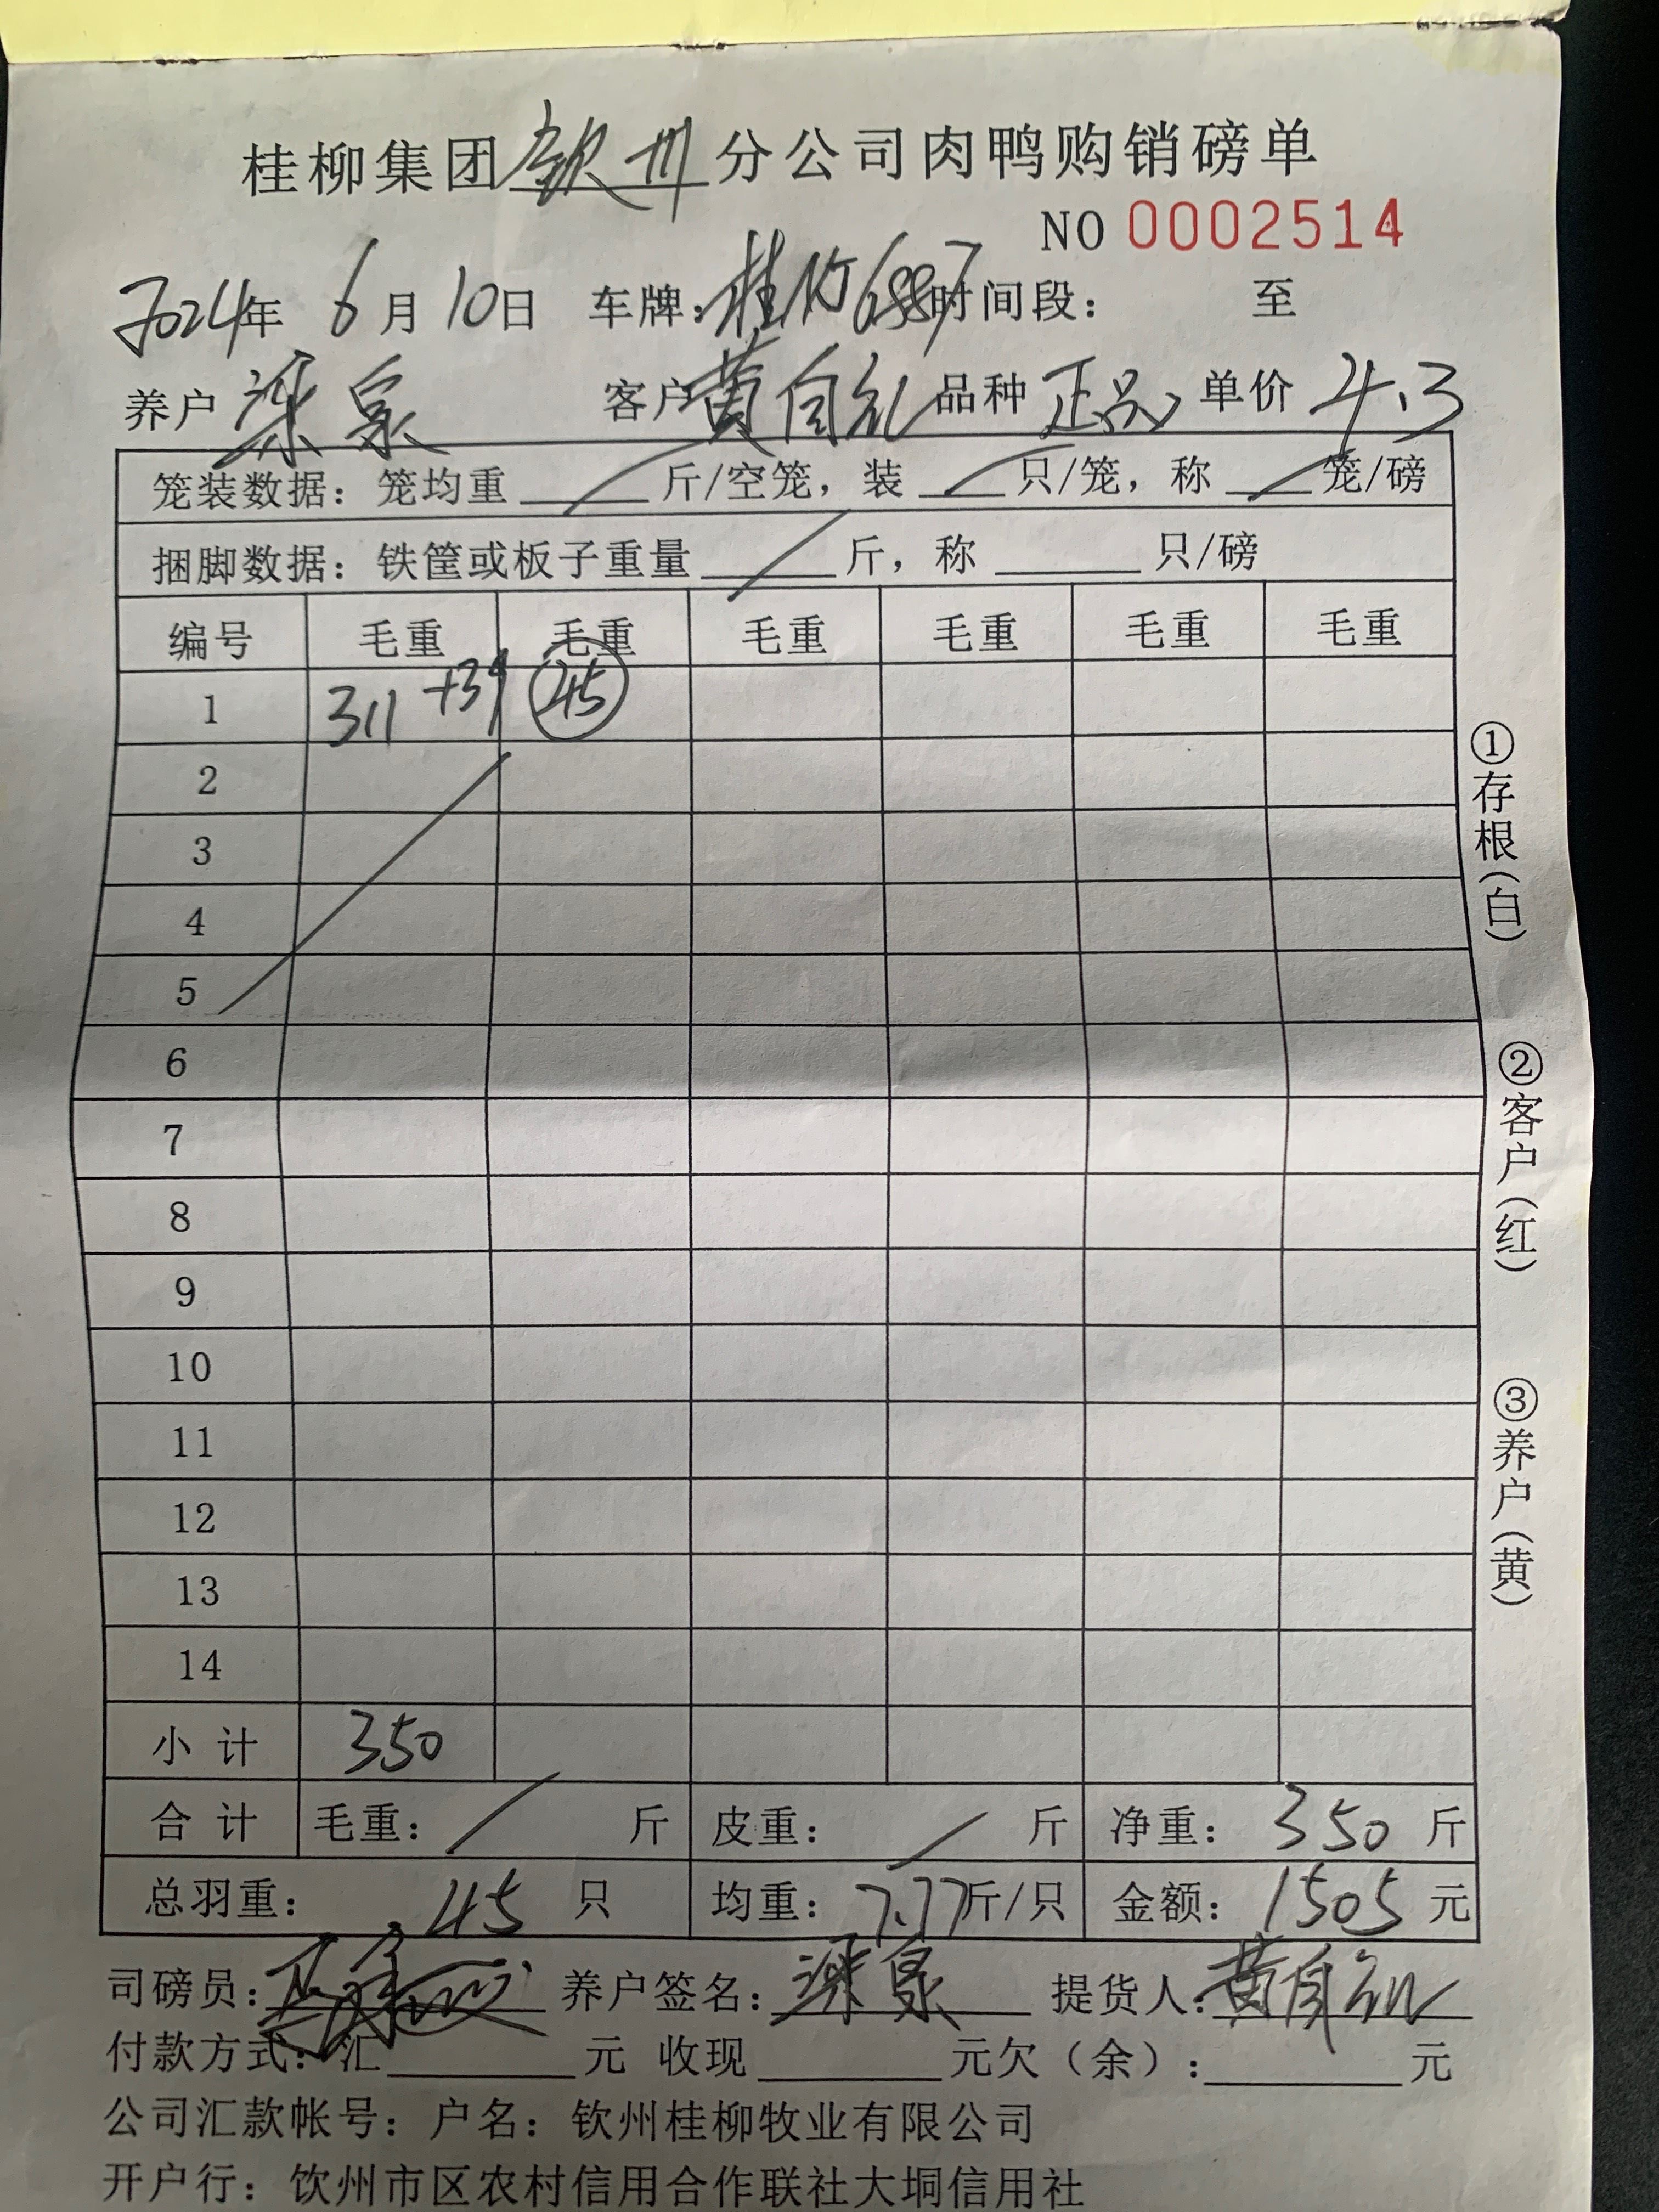 桂柳集团钦州分公司肉鸭购销磅单
NO 0002514
2024年 6月10日 车牌: 时间段： 至
养户 梁泉 客户 黄自礼 品种 正品 单价 4.3
笼装数据：笼均重 斤/空笼，装 只/笼，称 笼/磅
捆脚数据：铁筐或板子重量 斤，称 只/磅
编号 毛重 毛重 毛重 毛重 毛重 毛重
1 311 +39 45
2
3
4
5
6
7
8
9
10
11
12
13
14
小 计 350
合 计 毛重： 斤 皮重： 斤 净重： 350 斤
总羽重： 45 只 均重： 7.77 斤/只 金额： 1505 元
司磅员: 养户签名: 梁泉 提货人: 黄自礼
付款方式：汇 元 收现 元欠（余）: 元
公司汇款帐号：户名：钦州桂柳牧业有限公司
开户行：钦州市区农村信用合作联社大垌信用社
①存根(白)
②客户(红)
③养户(黄)